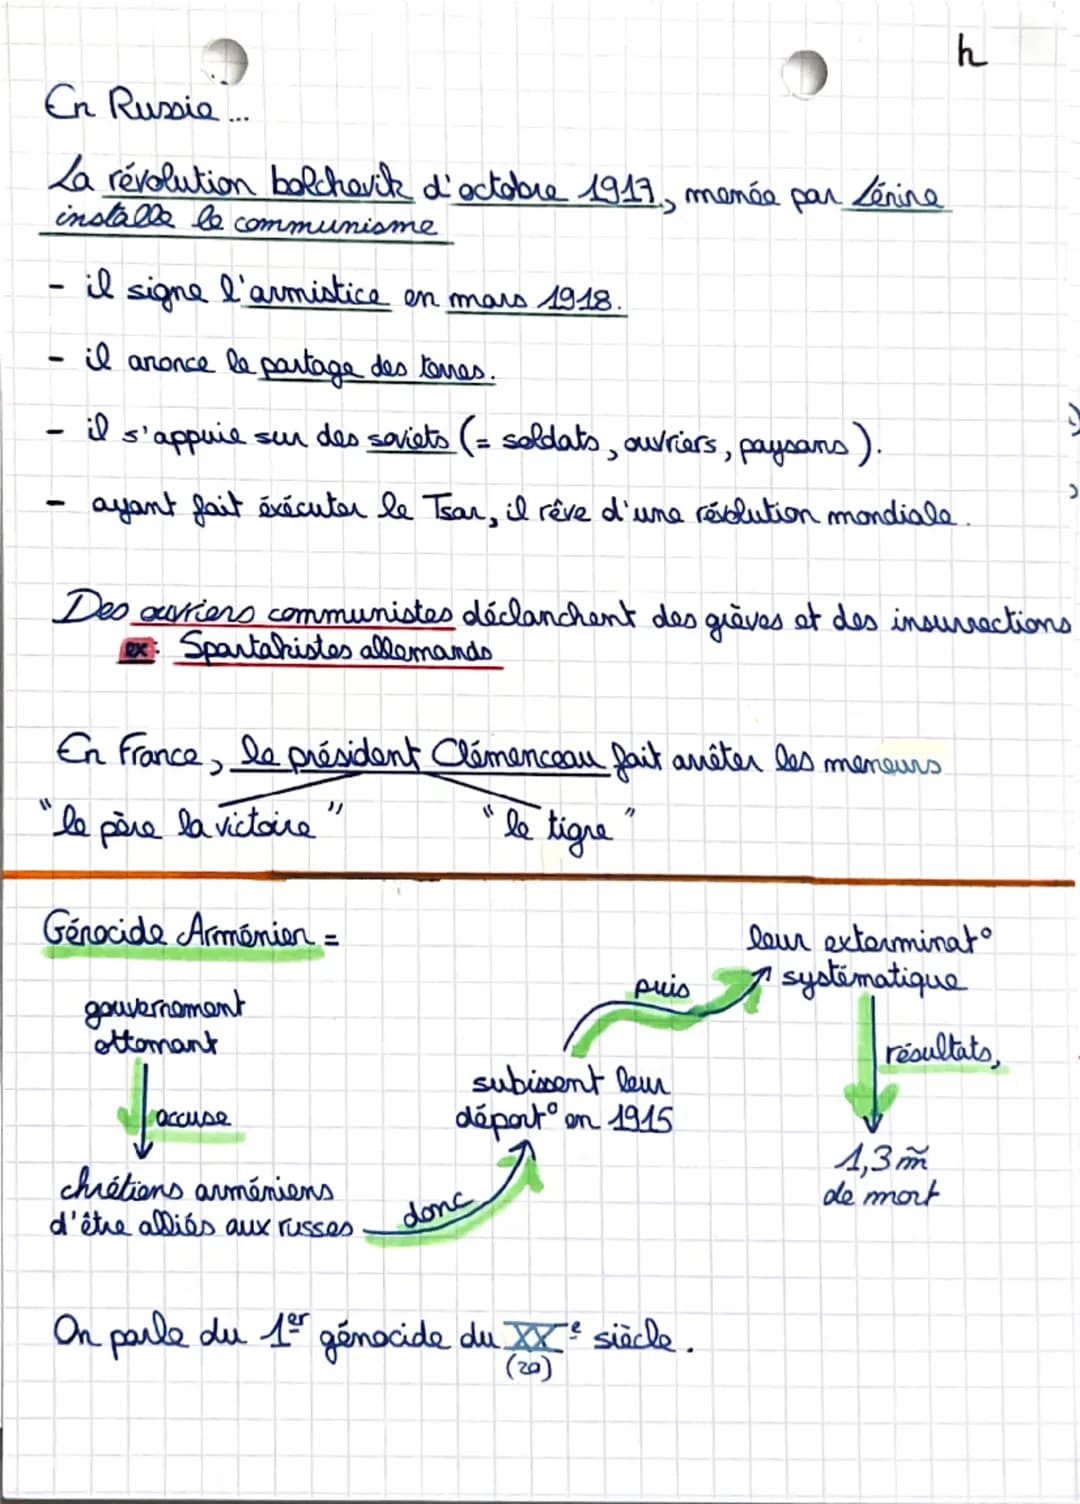 h
En Russie...
La révolution bolchevik d'octobre 1917, menée par Lénine
installe le communisme
- il signe l'armistice en mars 1918.
- il anonce le partage des terres.
- il s'appuie sur des soviets (= soldats, ouvriers, paysans).
- ayant fait éxécuter le Tsar, il rêve d'une révolution mondiale.
Des ouvriers communistes déclanchent des grèves et des insurrections
ex: Spartakistes allemands
En France, le président Clémenceau fait arrêter les meneurs
"le père la victoire" "le tigre"
Génocide Arménien =
gouvernement
ottomant
accuse
chrétiens arméniens
d'être alliés aux russes
donc
subissent leur
déport° en 1915
puis
leur exterminat°
systématique
résultats,
1,3 m̃
de mort
On parle du 1er génocide du XXe siècle.
(20)